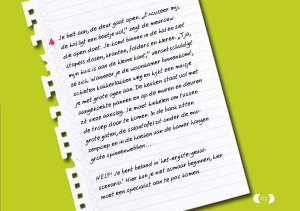 Je belt aan, de deur gaat open. „Excuseer mij,
de hal ligt een beetje vol,” zegt de mevrouw
die open doet. Je komt binnen in de hal en ziet
stapels dozen, kranten, folders en kleren. „Tja,
mijn huis aan de kleine kant,” verontschuldigt
ze zich. Wanneer je de woonkamer binnenkomt,
schieten kakkerlakken weg en kijkt een muisje
je met grote ogen aan. De keuken staat vol met
aangekoekte pannen en op de muren en deuren
zit vieze aanslag. Je moet hinkelen om tussen
de troep door te komen. In de bank zitten
grote gaten, de salontafel zit onder de
en in de hoeken van de kamer hangen
grote spinnenwebben...
HELP! Je bent beland in 'het-ergste-geval-
scenario'. Hier kun je niet zomaar beginnen, hier
moet een specialist aan te pas komen.